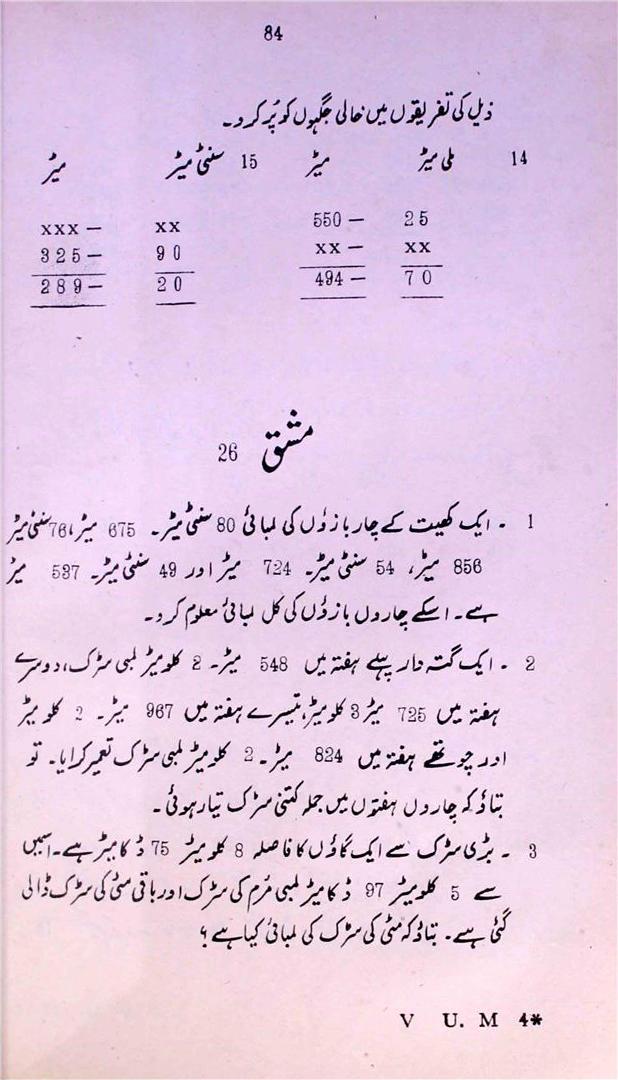 84
ذیل کی تفریقوں میں خالی جگہوں کو پُر کرو۔
14 ملی میٹر میٹر 15 سنٹی میٹر میٹر
550 – 25 xxx – xx
xx – xx 325 – 90
494 – 70 289 – 20
مشق 26
1 ۔ ایک کھیت کے چار بازوُں کی لمبائی 80 سنٹی میٹر۔ 675 میٹر، 76 سنٹی میٹر
856 میٹر، 54 سنٹی میٹر۔ 724 میٹر اور 49 سنٹی میٹر۔ 537 میٹر
ہے۔ اسکے چاروں بازوُں کی کل لمبائی معلوم کرو۔
2 ۔ ایک گتہ دار پہلے ہفتہ میں 548 میٹر۔ 2 کلومیٹر لمبی سڑک، دوسرے
ہفتہ میں 725 میٹر 3 کلومیٹر، تیسرے ہفتہ میں 967 میٹر۔ 2 کلومیٹر
اور چوتھے ہفتہ میں 824 میٹر۔ 2 کلومیٹر لمبی سڑک تعمیر کرایا۔ تو
بتاؤ کہ چاروں ہفتوں میں جملہ کتنی سڑک تیار ہوئی۔
3 ۔ بڑی سڑک سے ایک گاؤں کا فاصلہ 8 کلومیٹر 75 ڈکامیٹر ہے۔ اسمیں
سے 5 کلومیٹر 97 ڈکامیٹر لمبی مُرم کی سڑک اور باقی مٹی کی سڑک ڈالی
گئی ہے۔ بتاؤ کہ مٹی کی سڑک کی لمبائی کیا ہے؟
V U. M 4*